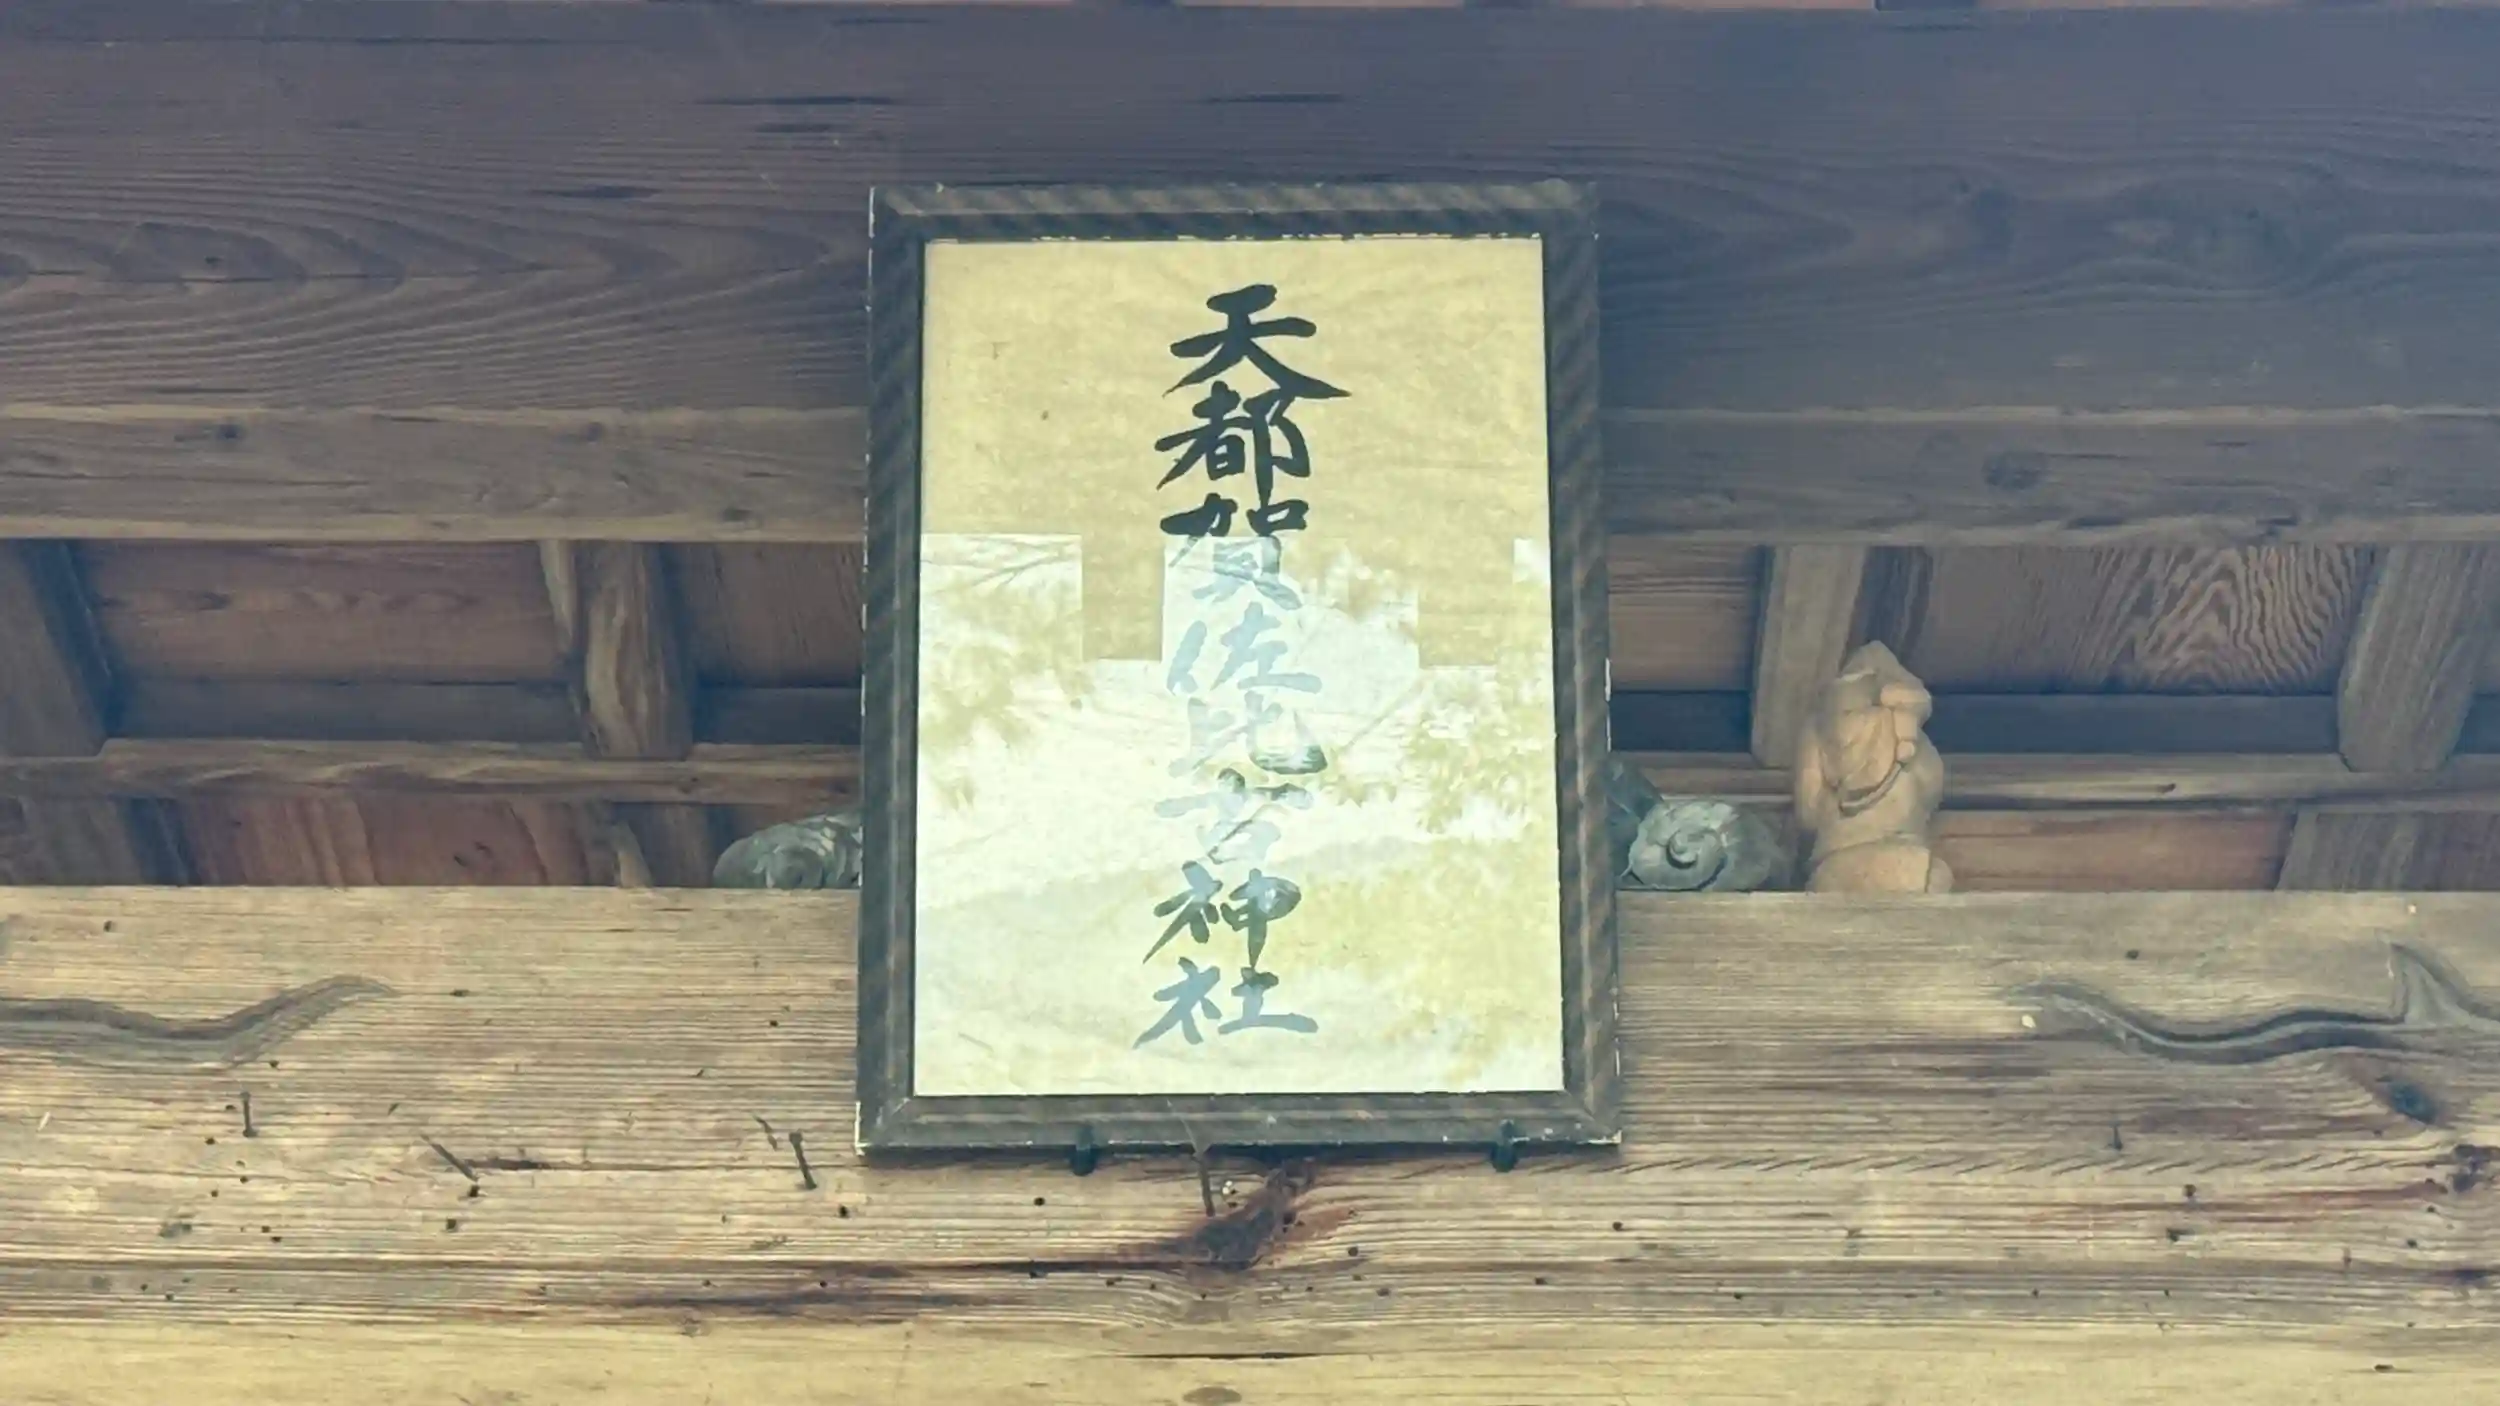 天都賀佐比古神社